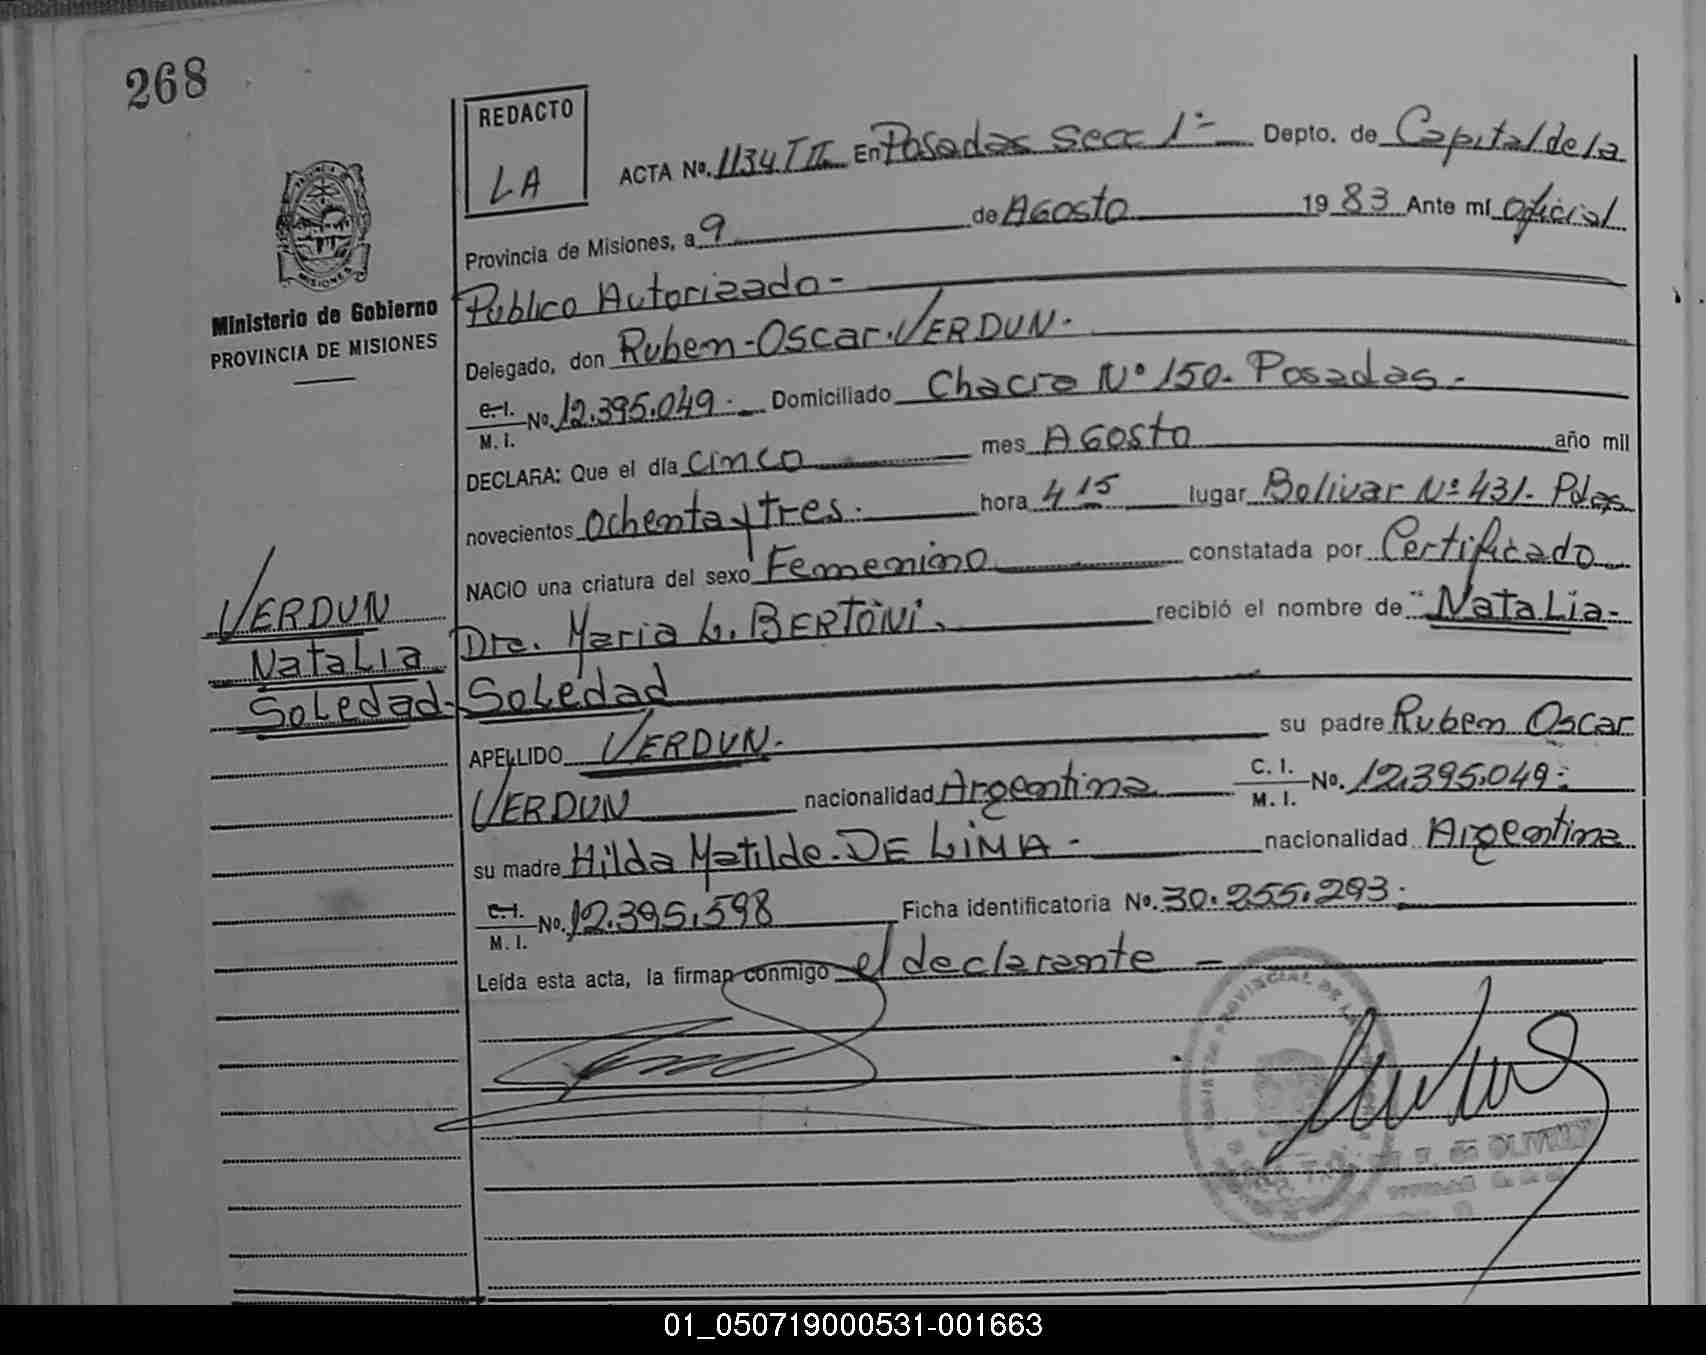 268
REDACTO
LA
ACTA No. 1134 T II En Posadas Secc 1ª Depto. de Capital de la
Provincia de Misiones, a 9 de Agosto 1983 Ante mí Oficial
Público Autorizado -
Delegado, don Ruben - Oscar. VERDUN.
C.I. / M.I. No. 12.395.049. Domiciliado Chacra Nº 150. Posadas.
DECLARA: Que el día cinco mes Agosto año mil
novecientos ochenta y tres. hora 4 15 lugar Bolivar Nº 431. Pdas
NACIO una criatura del sexo Femenino constatada por Certificado
Dra. Maria L. BERTONI. recibió el nombre de "Natalia-
Soledad
APELLIDO VERDUN. su padre Ruben Oscar
VERDUN nacionalidad Argentina C.I. / M.I. No. 12.395.049.
su madre Hilda Matilde. DE LIMA - nacionalidad Argentina
C.I. / M.I. No. 12.395.598 Ficha identificatoria No. 30.255.293.
Leída esta acta, la firman conmigo el declarante -
MISIONES
Ministerio de Gobierno
PROVINCIA DE MISIONES
VERDUN
Natalia
Soledad.
PROVINCIAL DE LA
01_050719000531-001663